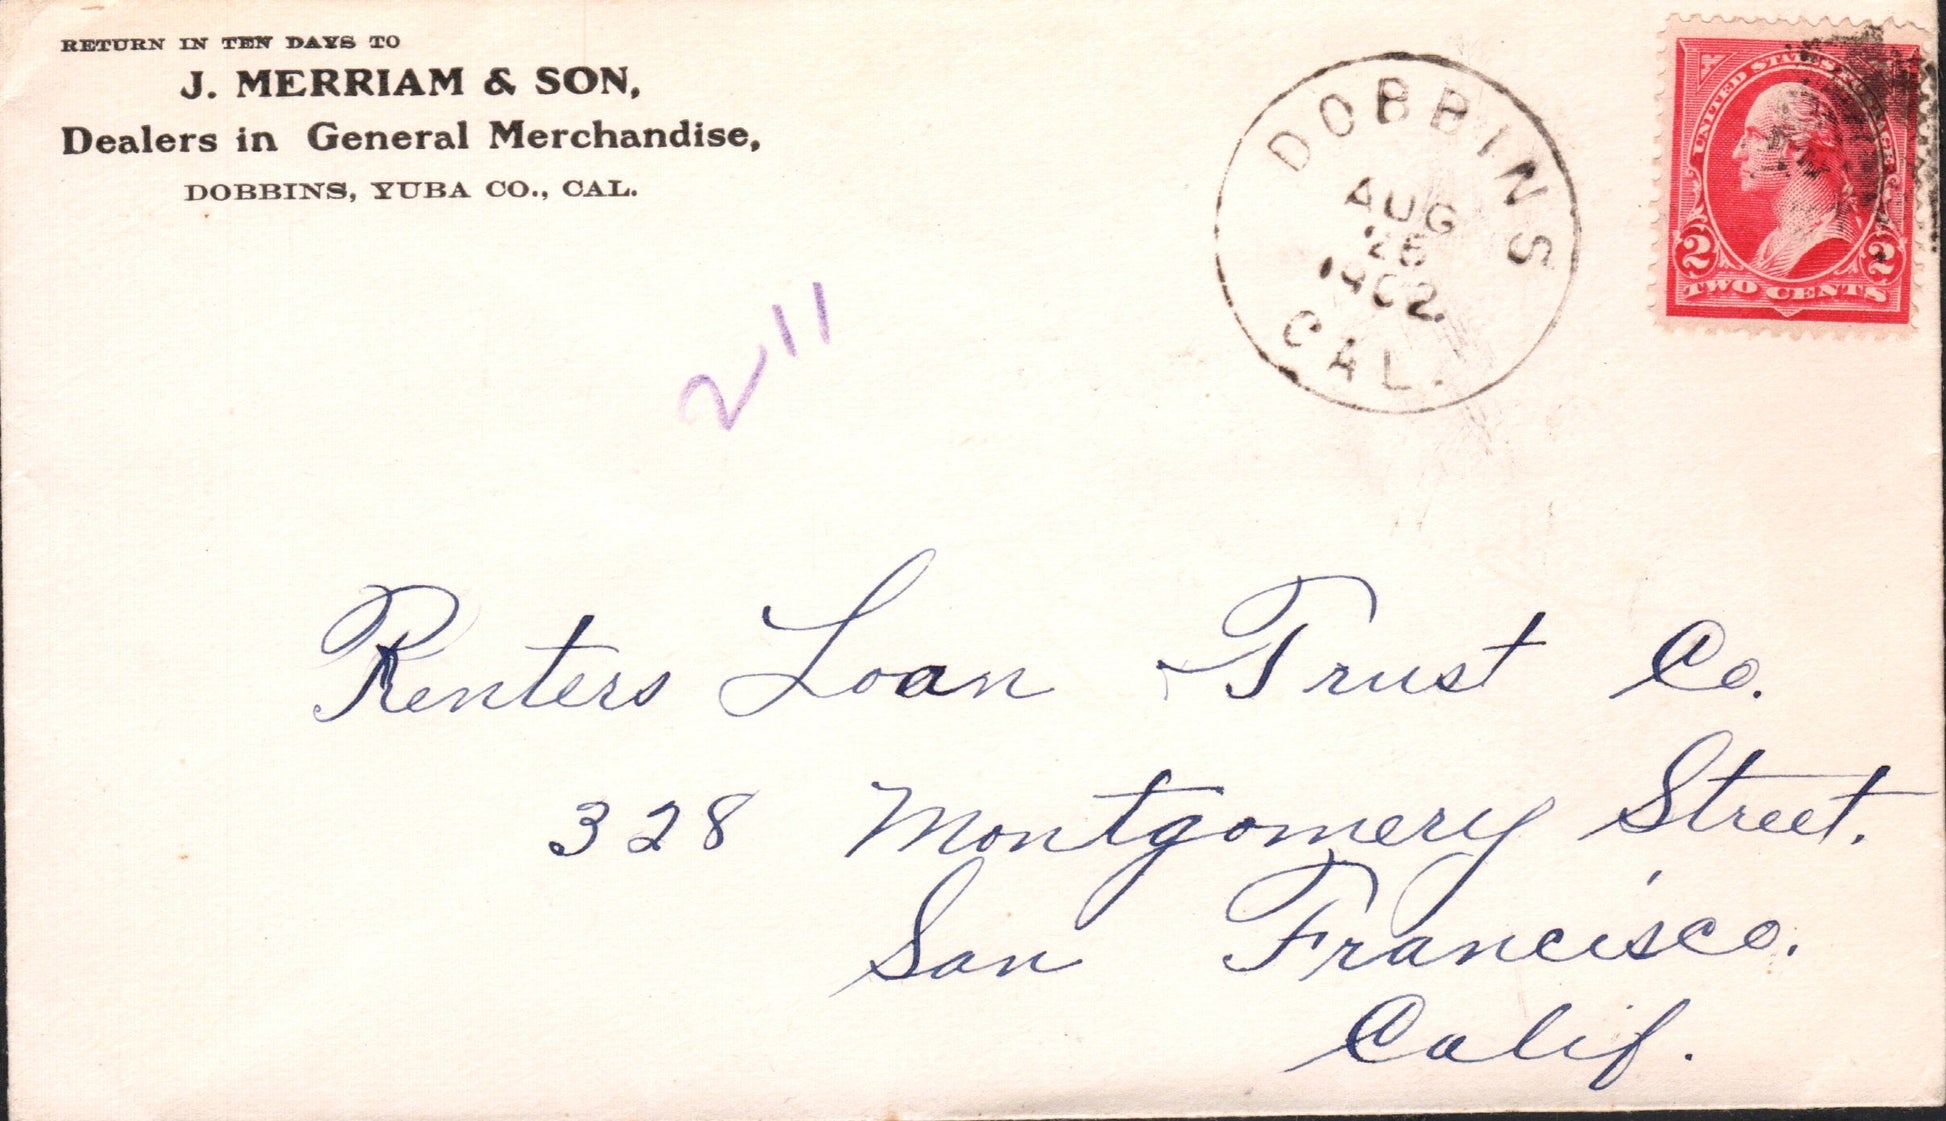 RETURN IN TEN DAYS TO
J. MERRIAM & SON,
Dealers in General Merchandise,
DOBBINS, YUBA CO., CAL.
DOBBINS
AUG
25
1902
CAL.
UNITED STATES POSTAGE
2 2
TWO CENTS
211
Renters Loan & Trust Co.
328 Montgomery Street.
San Francisco.
Calif.